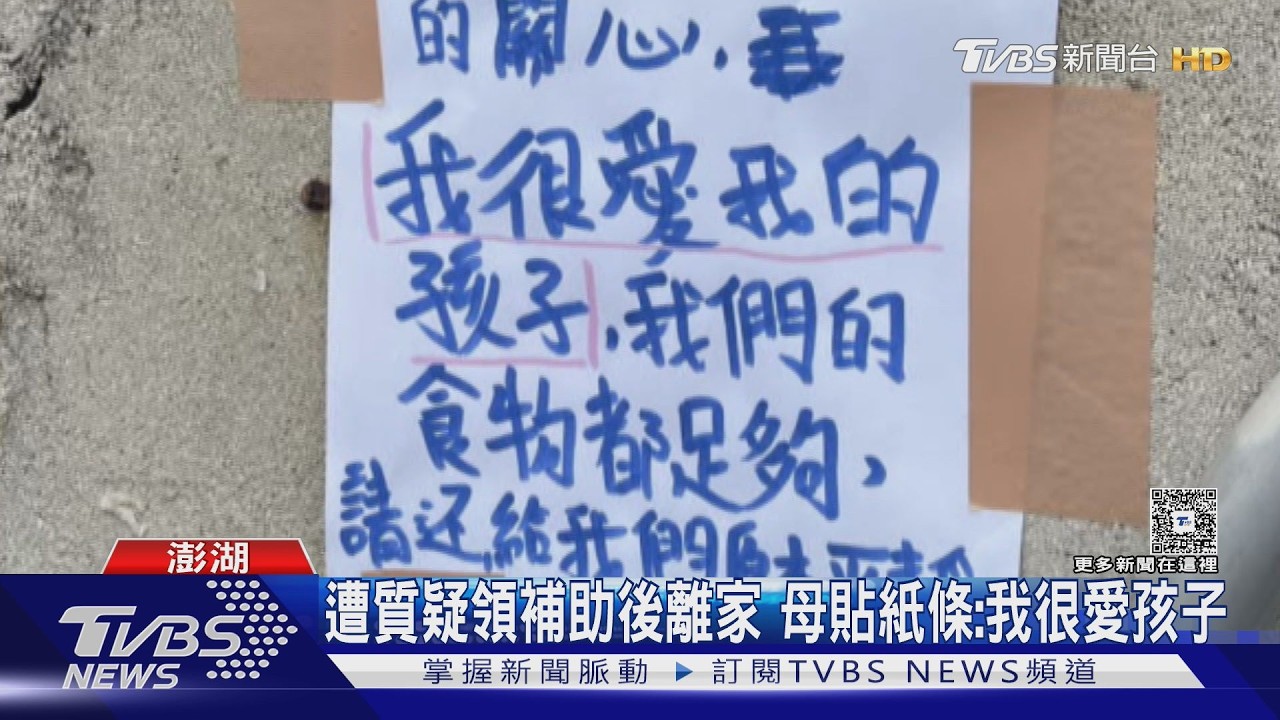 的關心,
TVBS新聞台 HD
我很愛我的
孩子,我們的
食物都足夠,
請还給我們原本平靜
更多新聞在這裡
澎湖
遭質疑領補助後離家 母貼紙條:我很愛孩子
TVBS NEWS
掌握新聞脈動 ▶ 訂閱TVBS NEWS頻道